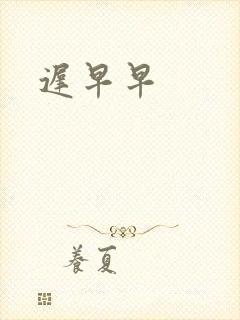 遲早早
養夏